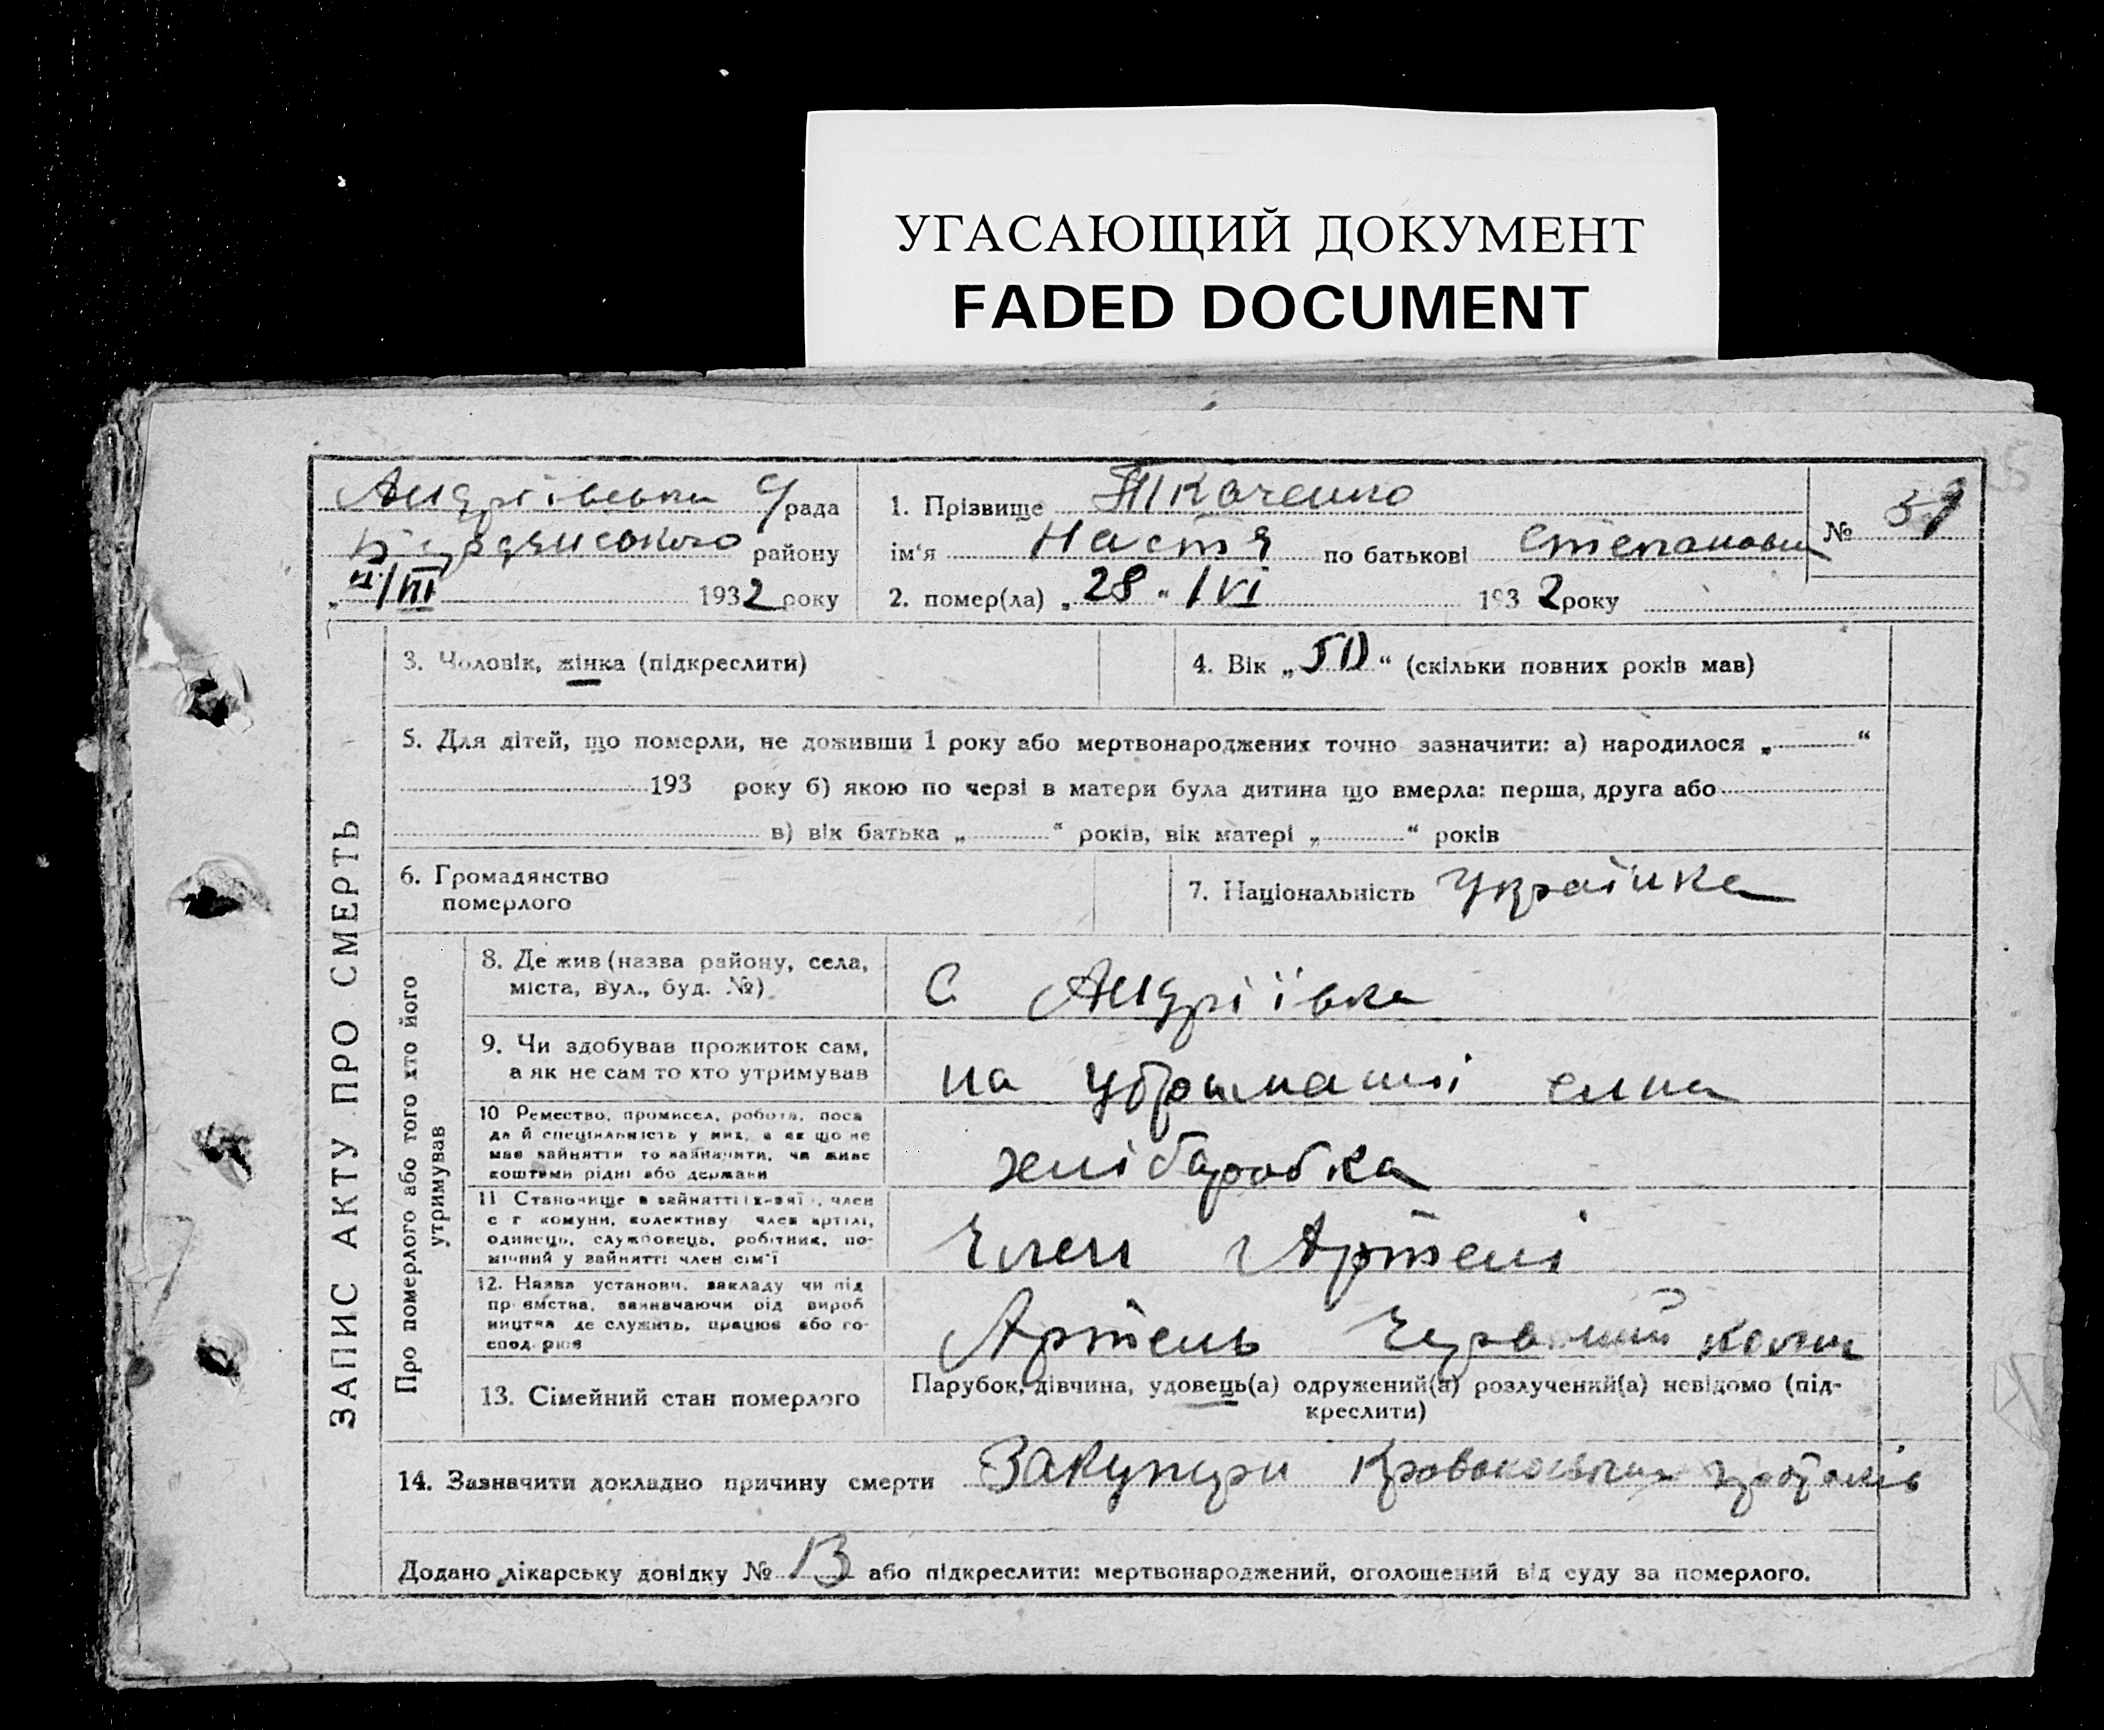 УГАСАЮЩИЙ ДОКУМЕНТ
FADED DOCUMENT
Андріївська с/рада
Бердянського району
193 2 року
1. Прізвище Ткаченко
ім‘я Настя по батькові Степановн
2. помер(ла) „ 28 “ / VI 193 2 року
№
ЗАПИС АКТУ ПРО СМЕРТЬ
3. Чоловік, жінка (підкреслити)
4. Вік „ 50 “ (скільки повних років мав)
5. Для дітей, що померли, не доживши 1 року або мертвонароджених точно зазначити: а) народилося „ “
193 року б) якою по черзі в матери була дитина що вмерла: перша, друга або
в) вік батька „ “ років, вік матері „ “ років
6. Громадянство
померлого
7. Національність Українка
Про померлого або того хто його
утримував
8. Де жив (назва району, села,
міста, вул., буд. №)
с Андріївка
9. Чи здобував прожиток сам,
а як не сам то хто утримував
на утриманні сина
10 Ремество, промисел, робота, поса
да й спеціяльність у них, а як що не
має зайняття то зазначити, чи живе
коштами рідні або держави
хліборобка
11 Становище в зайнятті член
с г комуни, колективу член артілі,
одинець, службовець, робітник, по-
мічний у зайнятті член сім‘ї
Член Артелі
12. Назва установи, закладу чи під
приємства, зазначаючи рід вироб
ництва де служить, працює або го-
сподарює
Артель
13. Сімейний стан померлого
Парубок, дівчина, удовець(а) одружений(а) розлучений(а) невідомо (під-
креслити)
14. Зазначити докладно причину смерти Закупури
Додано лікарську довідку № 13 або підкреслити: мертвонароджений, оголошений від суду за померлого.